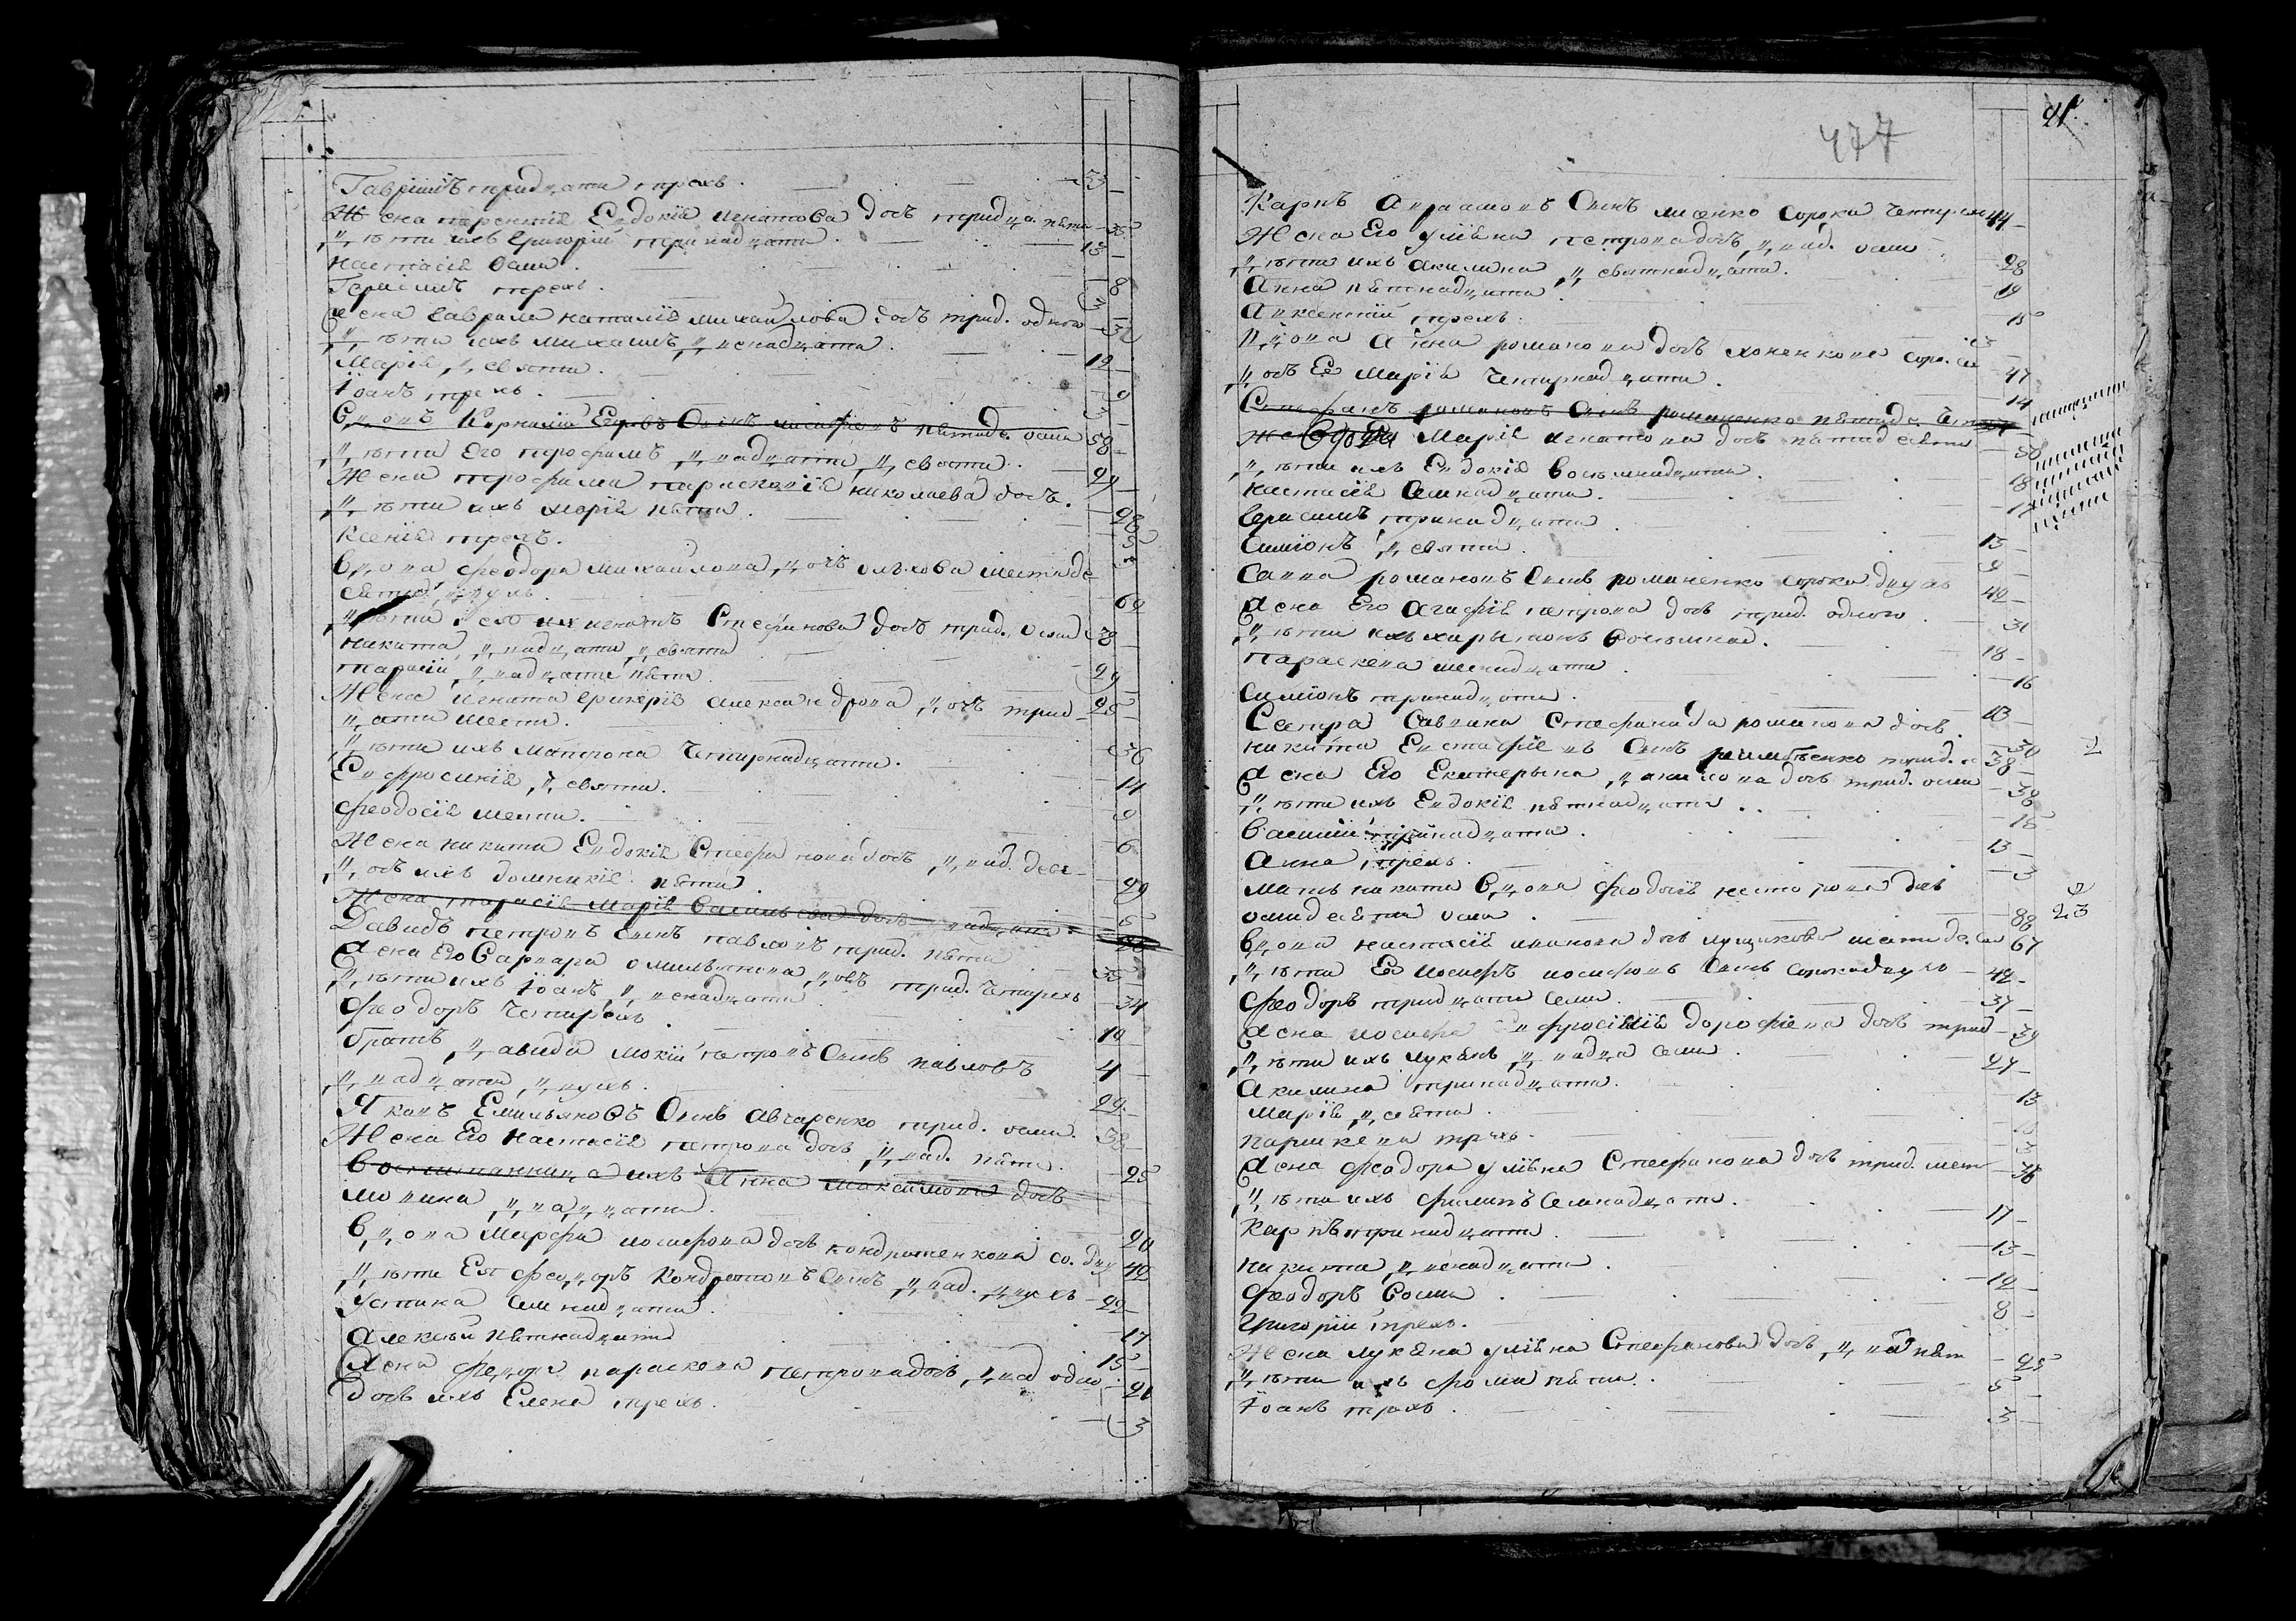 Гавріилъ тридцати трехъ. 33
Жена терентія Евдокія игнатова дочь тридца. пяти 35
дѣти ихъ григорій тринадцати. 13
настасія осми. 8
Герасимъ трехъ. 3
жена гаврила наталія михайлова дочь трид. одного 31
дѣти ихъ михаилъ двенадцати. 12
Марія девяти. 9
Іоанъ трехъ. 3
Вдовъ Корнилій Сынъ пятиде. осми 58
дѣти Его трофимъ двадцати девяти. 29
Жена трофима параскевія николаева дочь. 28
дѣти ихъ марія пяти. 5
Ксенія трехъ. 3
Вдова феодора михайлова дочь шестиде-
сяти двухъ. 62
дѣти игнатъ Стефанова дочь трид. осми 38
никита двадцати девяти 29
тарасій двадцати пяти. 25
Жена игната гликерія александрова дочь трид-
цати шести. 36
дѣти ихъ матрона четирнадцати. 14
Евфросинія девяти. 9
феодосія шести. 6
Жена никити Евдокія Стефанова дочь двад. девя- 29
дочь ихъ домникія пяти. 5
Жена тарасія Марія Василіева дочь двадцати
Давидъ петровъ Сынъ павловъ трид. пяти 35
жена Его Варвара омильянова дочь трид. четирехъ 34
дѣти ихъ Іоанъ двенадцати 12
феодоръ четирехъ. 4
братъ давида мокій петровъ Сынъ павловъ
двадцати двухъ. 22
Яковъ Емильяновъ Сынъ авчаренко трид. осми. 38
Жена Его настасія петрова дочь двад. пяти. 25
Воспитанница ихъ Анна максимова дочь
двадцати. 20
Вдова Марфа иосифова дочь кондратенкова со. дву 42
дѣти Ея феодоръ Кондратовъ Сынъ двад. двухъ 22
Устина семнадцати. 17
алексѣй пятнадцати 15
жена феодора параскева петрова дочь двад одно. 21
дочь ихъ Елена трехъ. 3
477
91.
Карпъ Авраамовъ Сынъ лисенко сорока четирехъ 44
Жена Его уліяна петрова дочь двад. осми 28
дѣти ихъ акилина девятнадцати. 19
Анна пятнадцати. 15
Авксентій трехъ. 3
Вдова Анна романова дочь соро. се 47
дочь Ея Марія четирнадцати. 14
Стефанъ романовъ Сынъ романенко пятиде. чет
Вдова Марія игнатова дочь пятидесяти 50
дѣти ихъ Евдокія восемнадцати. 18
настасія семнадцати. 17
герасимъ тринадцати. 13
Симіонъ девяти. 9
Савва романовъ Сынъ романенко сорока двухъ 42
жена Его Агафія петрова дочь трид. одного. 31
дѣти ихъ харытонъ восемнад. 18
параскева шеснадцати. 16
симіонъ тринадцати. 13
Сестра Саввина Стефанида романова дочь. 30
никита Евстафіевъ Сынъ трид. ос 38
жена Его Екатерына якимова дочь трид. осми 38
дѣти ихъ Евдокія пятнадцати. 15
василій тринадцати. 13
анна трехъ. 3
мать никити Вдова феодосія несторова дочь
осмидесяти осми. 88 23
Вдова настасія иванова дочь шестиде. се 67
дѣти Ея иосифъ иосифовъ Сынъ сорокадвухъ 42
феодоръ тридцати семи. 37
жена иосифа Евфросинія дорофѣева дочь трид 39
дѣти ихъ лукянъ двадца семи. 27
акилина тринадцати. 13
Марія десяти. 10
параскева трехъ. 3
жена феодора уліяна Стефанова дочь трид. шест 36
дѣти ихъ филипъ семнадцати. 17
Карпъ тринадцати. 13
никита двенадцати. 12
феодоръ восми. 8
григорій трехъ. 3
Жена лукяна уліяна Стефанова дочь двад пят 25
дѣти ихъ фома пяти. 5
Іоанъ трехъ. 3